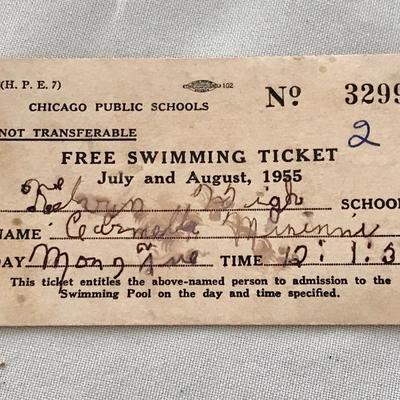 (H. P. E. 7) 102
CHICAGO PUBLIC SCHOOLS Nº 3299
NOT TRANSFERABLE 2
FREE SWIMMING TICKET
July and August, 1955
High SCHOOL
NAME: Carmella
DAY TIME
This ticket entitles the above-named person to admission to the
Swimming Pool on the day and time specified.